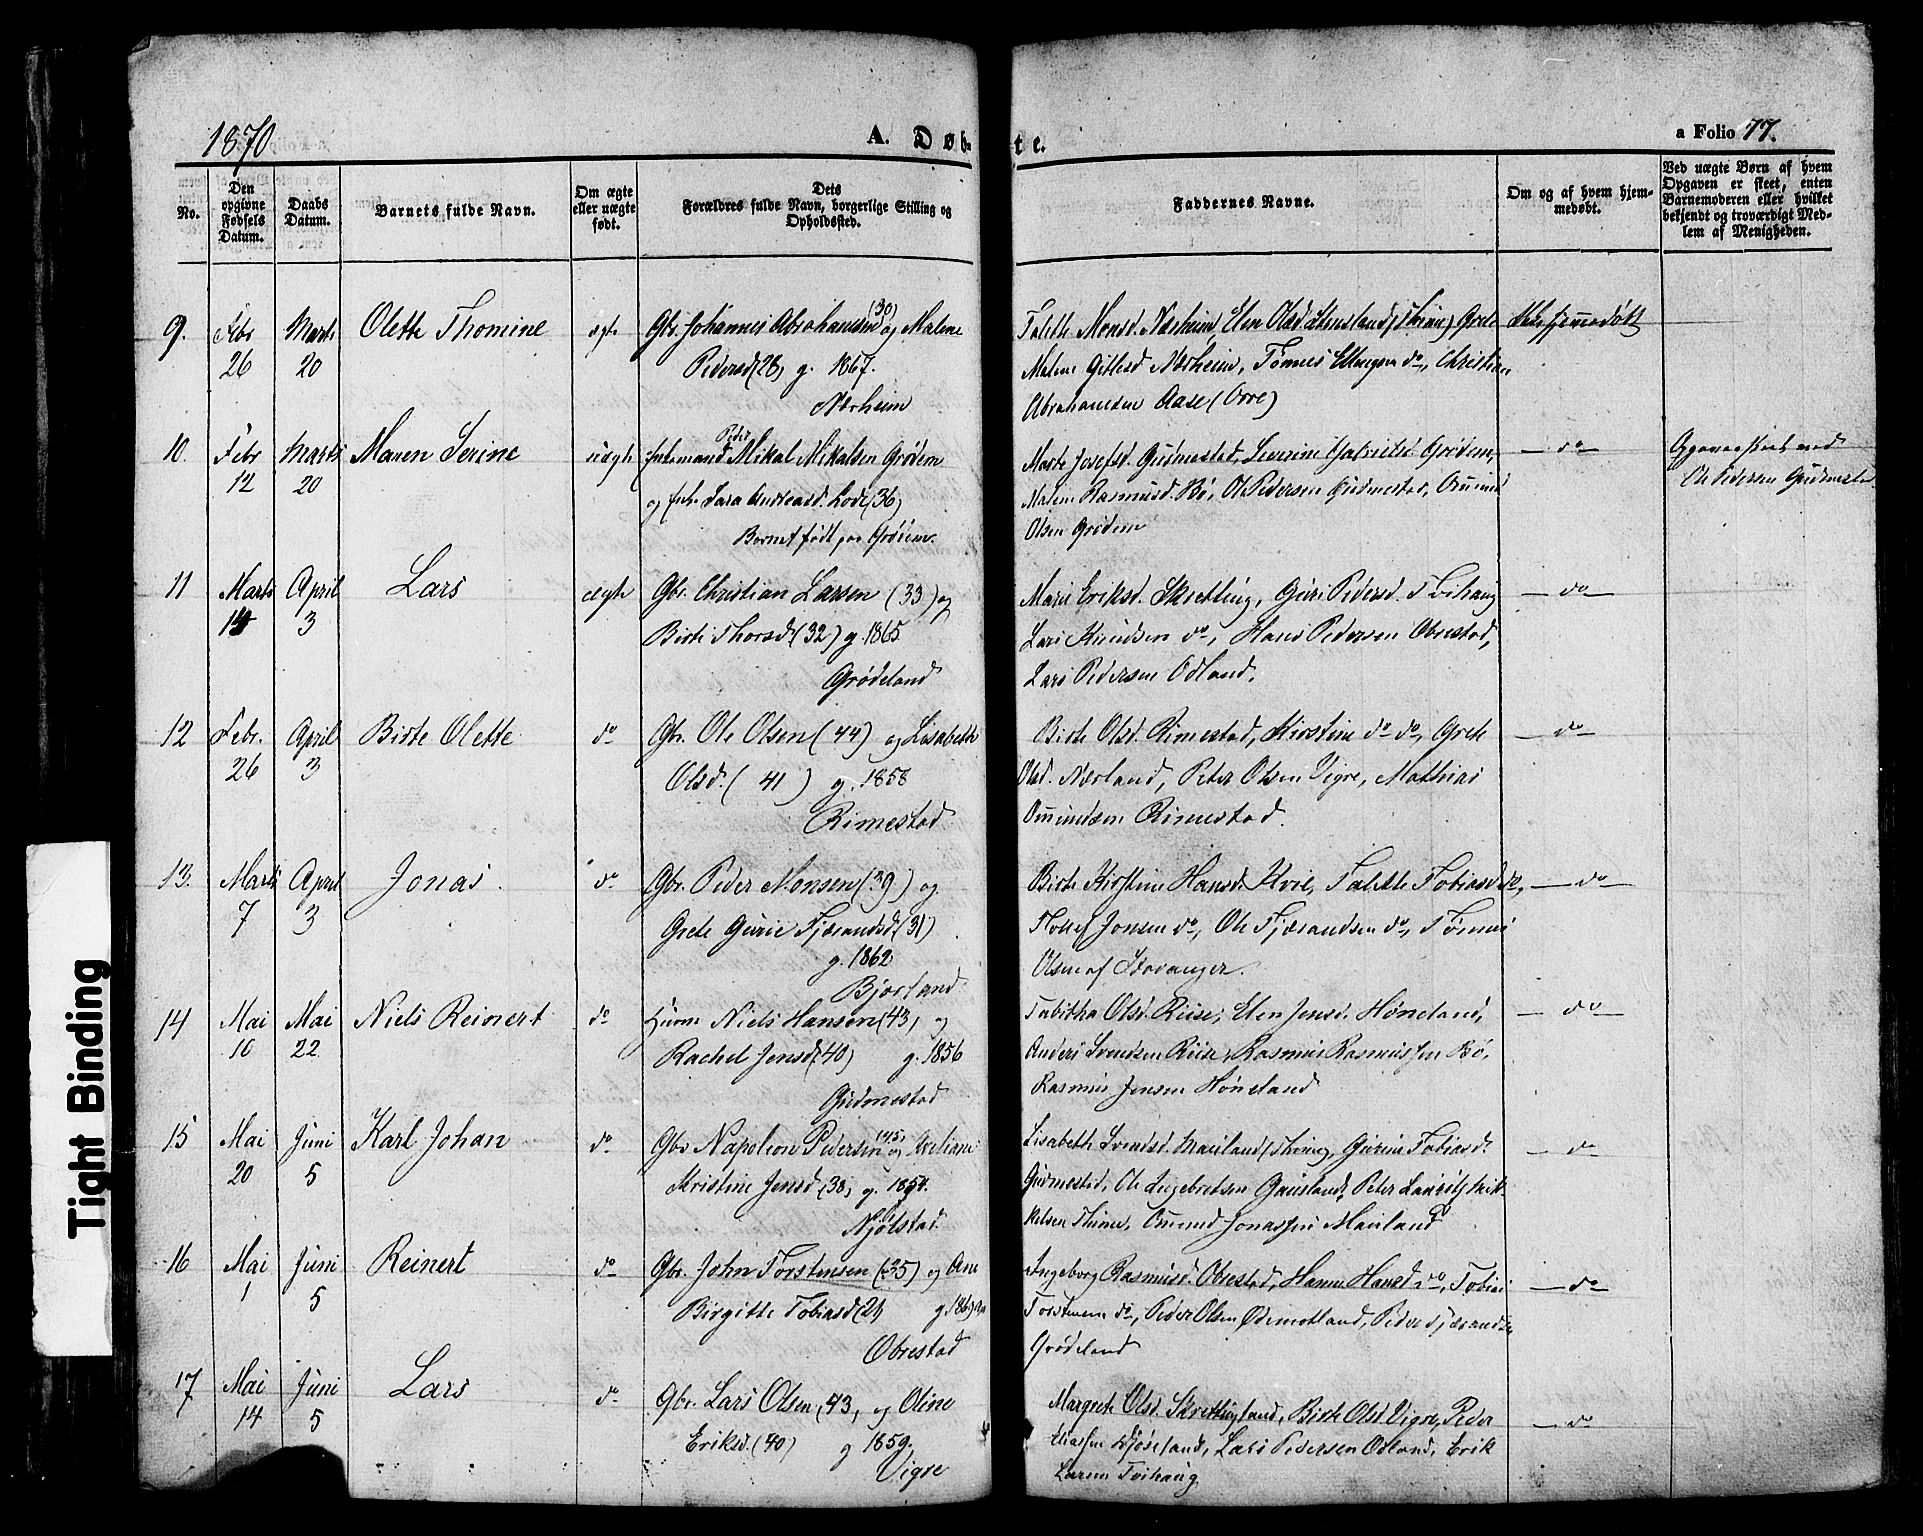 1870
A. Døb-
te.
a Folio 77.
No.
Den opgivne Fødsels Datum.
Daabs Datum.
Barnets fulde Navn.
Om ægte eller uægte født.
Dets Forældres fulde Navn, borgerlige Stilling og Opholdssted.
Faddernes Navne.
Om og af hvem hjemmedøbt.
Ved uægte Børn af hvem Opgaven er skeet, enten Barnemoderen eller hvilket bekjendt og troværdigt Medlem af Menigheden.
9. Febr 26 Marts 20 Olette Thomine ægte Gbr. Johannes Abrahamsen (30) og Malene
Pedersd (28) g. 1867.
Nærheim
Talette Monsd. Nærheim, Elen Olsd. (Thime) Grete
Malene Gitlesd Nærheim, Tønnes do, Christian
Abrahamsen Aase (Orre)
Ikke hjemmedøbt
10. Febr 12 Marts 20 Maren Serine uægte Peder Mikal Mikalsen Grødem
og Sara Andreasd. Lode (36)
Barnet født paa Grødem
Marte Josefsd. Gudmestad, Severine Gabrielsd Grødem,
Malene Rasmusd. Bø, Ol. Pedersen Gudmestad, Omund
Olsen Grødem
do
Ole Pedersen Gudmestad
11 Marts 14 April 3 Lars ægte Gbr. Christian Larsen (33) og
Birte Thorsd (32) g. 1865.
Grødeland
Mari Eriksd. Skretting, Guri Pedersd. Tvihaug
Lars Knudsen do, Hans Pedersen Obrestad,
Lars Pedersen Odland.
do
12 Febr. 26 April 3 Birte Olette do Gbr. Ole Olsen (44) og Lisabeth
Olsd. (41) g. 1858
Rimestad
Birte Olsd. Rimestad, Kirstine do do, Grete
Olsd. Nærland, Peter Olsen Vigre, Mathias
Omundsen Rimestad.
do
13. Marts 7 April 3 Jonas. do Gbr. Peder Monsen (39) og
Grete Gurie Fjærandsd. (31)
g. 1862
Bjorland
Birte Kirstine Hansd. Kvie, Talette Tobiasd do,
Tollef Jonsen do, Ole Fjærandsen do, Tønnes
Olsen af Stavanger.
do
14 Mai 10 Mai 22 Niels Reinert do Huusm Niels Hansen (43) og
Rachel Jensd (40) g. 1856
Gudmestad
Tabitha Olsd. Riise, Elen Jensd. Høneland,
Anders Svendsen Riise, Rasmus Rasmussen Bø,
Rasmus Jensen Høneland
do
15 Mai 20 Juni 5 Karl Johan do Gbr Napoleon Pedersen (45) og
Kristine Jensd (38) g.
Njølstad
Lisabeth Svendsd. Mauland (Thime), Gurine Tobiasd.
Gudmestad, Ole Ingebretsen Gausland, Peter Lauritz Mik-
kelsen Thime, Omund Jonassen Mauland
do
16 Mai 1 Juni 5 Reinert do Gbr. John Torstensen (25) og Ane
Birgitte Tobiasd (21) g. 1869
Obrestad
Ingeborg Rasmusd. Obrestad, Hanne Hansd do, Tobias
Torstensen do, Peder Olsen Ødemotland, Peder Fjærandsen
Grødeland
do
17 Mai 14 Juni 5 Lars do Gbr. Lars Olsen (43) og Oline
Eriksd. (40) g 1859.
Vigre
Margrete Olsd. Skrettingland, Birte Olsd. Vigre, Peder
Eliassen Lars Pedersen Odland, Erik
Larsen Tvihaug
do
Tight Binding